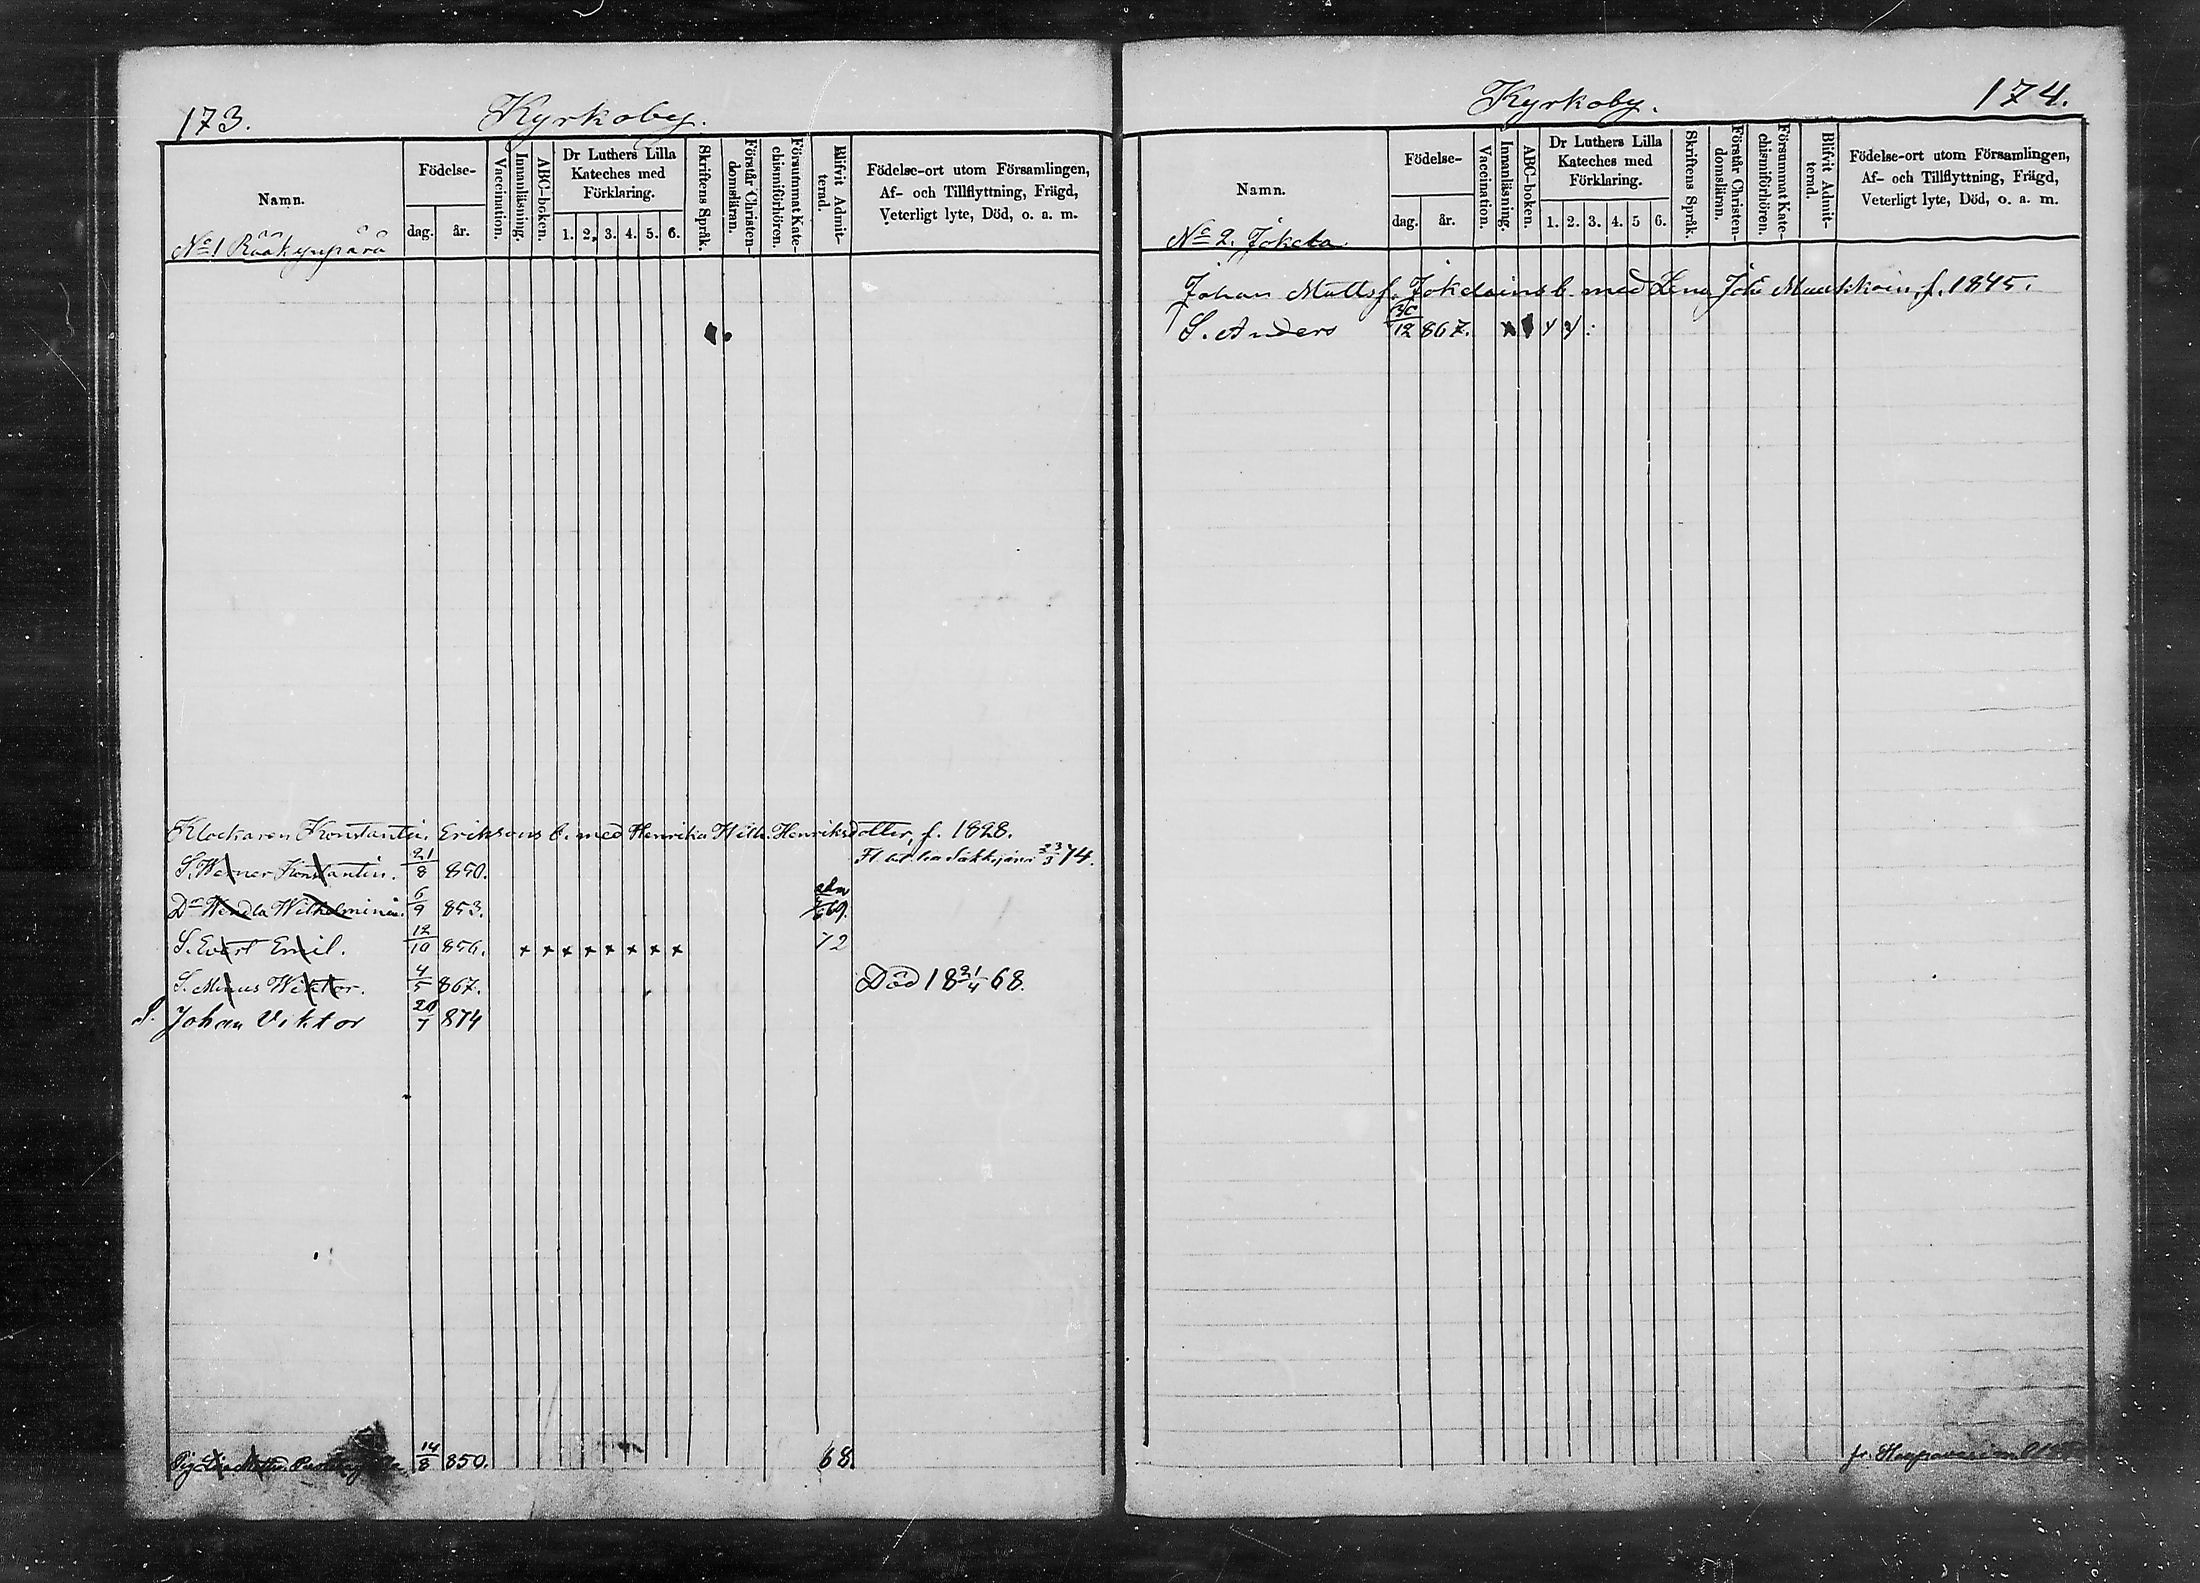 173.
Kyrkoby.
Namn.
Födelse-
dag. år.
Vaccination.
Innanläsning.
ABC-boken.
Dr Luthers Lilla
Kateches med
Förklaring.
1. 2. 3. 4. 5. 6.
Skriftens Språk.
Förstår Christen-
domsläran.
Försummat Kate-
chismiförhören.
Blifvit Admit-
terad.
Födelse-ort utom Församlingen,
Af- och Tillflyttning, Frägd,
Veterligt lyte, Död, o. a. m.
No 1 Rääkynpärä
Klockaren Konstantin Eriksons b. med Henrika Wilh. Henriksdotter, f. 1828.
S. Werner Konstantin. 21/8 850. 23/3 74.
Dr Wendla Wilhelmina. 6/9 853. adm 69.
S. Evert Emil. 12/10 856. x x x x x x x x 72
S. Minus Wiktor. 4/5 867. Död 18 21/4 68.
S. Johan Viktor 20/7 874
Pig 14/8 850. 68
Kyrkoby.
174.
Namn.
Födelse-
dag. år.
Vaccination.
Innanläsning.
ABC-boken.
Dr Luthers Lilla
Kateches med
Förklaring.
1. 2. 3. 4. 5 6.
Skriftens Språk.
Förstår Christen-
domsläran.
Försummat Kate-
chismiförhören.
Blifvit Admit-
terad.
Födelse-ort utom Församlingen,
Af- och Tillflyttning, Frägd,
Veterligt lyte, Död, o. a. m.
No 2. Jokela.
Johan Mattsf. Jokelains b. med Lena Joh. Muukkoin, f. 1845.
S. Anders 30/12 867.